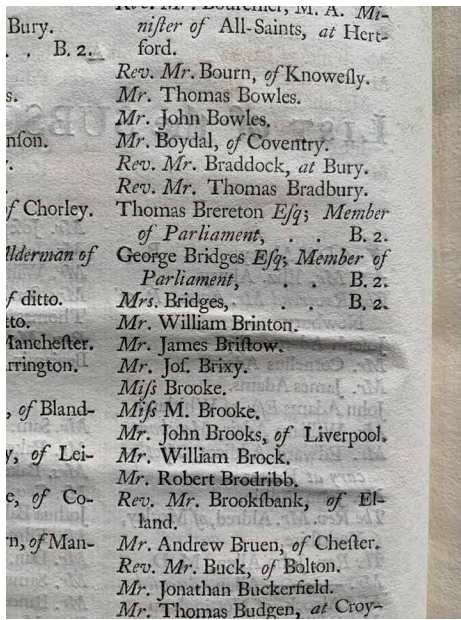 Bury.
. . B. 2.
s.
nſon.
f Chorley.
lderman of
f ditto.
tto.
Mancheſter.
rrington.
, of Bland-
y, of Lei-
e, of Co-
rn, of Man-
Rev. Mr. Bourchier, M. A. Mi-
niſter of All-Saints, at Hert-
ford.
Rev. Mr. Bourn, of Knoweſly.
Mr. Thomas Bowles.
Mr. John Bowles.
Mr. Boydal, of Coventry.
Rev. Mr. Braddock, at Bury.
Rev. Mr. Thomas Bradbury.
Thomas Brereton Eſq; Member
of Parliament, . . B. 2.
George Bridges Eſq; Member of
Parliament, . . B. 2.
Mrs. Bridges, . . B. 2.
Mr. William Brinton.
Mr. James Briſtow.
Mr. Joſ. Brixy.
Miſs Brooke.
Miſs M. Brooke.
Mr. John Brooks, of Liverpool.
Mr. William Brock.
Mr. Robert Brodribb.
Rev. Mr. Brookſbank, of El-
land.
Mr. Andrew Bruen, of Cheſter.
Rev. Mr. Buck, of Bolton.
Mr. Jonathan Buckerfield.
Mr. Thomas Budgen, at Croy-